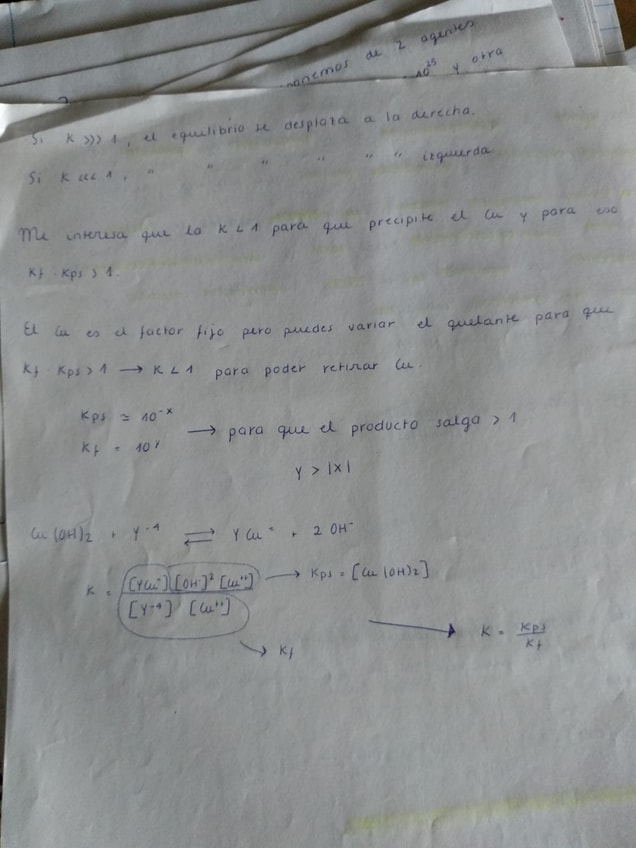 ponemos de 2 agentes
10²⁵ y otra
Si K >>> 1, el equilibrio se desplaza a la derecha.
Si K <<< 1, " " " " " " izquierda
Me interesa que la K < 1 para que precipite el Cu y para eso
Kf · Kps > 1.
El Cu es el factor fijo pero puedes variar el quelante para que
Kf · Kps > 1 → K < 1 para poder retirar Cu.
Kps ≃ 10⁻ˣ
Kf = 10ʸ → para que el producto salga > 1
Y > |X|
Cu(OH)2 + Y⁻⁴ ⇌ YCu⁼ + 2 OH⁻
K = [YCu⁼] [OH⁻]² [Cu⁺⁺] → Kps = [Cu(OH)2]
[Y⁻⁴] [Cu⁺⁺]
→ K = Kps / Kf
→ Kf